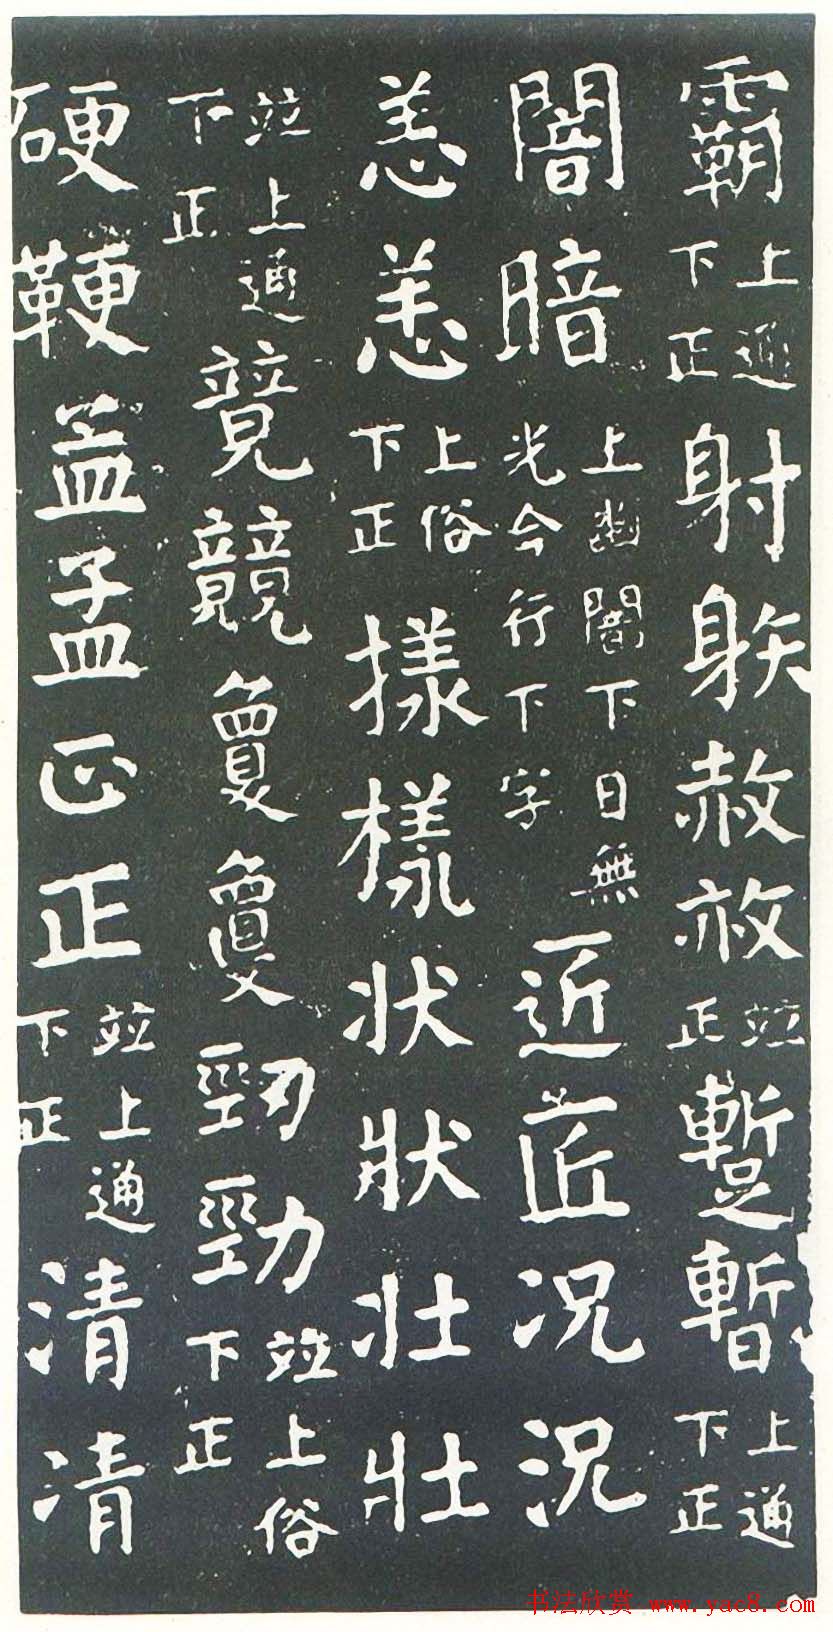 霸上通下正射䠶赦𢼜並正蹔暫上通下正
闇暗上幽闇下日無光今行下字近匠况況
恙恙上俗下正㨾樣状狀壮壯
並上通下正竟競敻敻剄勁並上俗下正
硬鞕盖孟正正並上通下正清清
书法欣赏 www.yac8.com